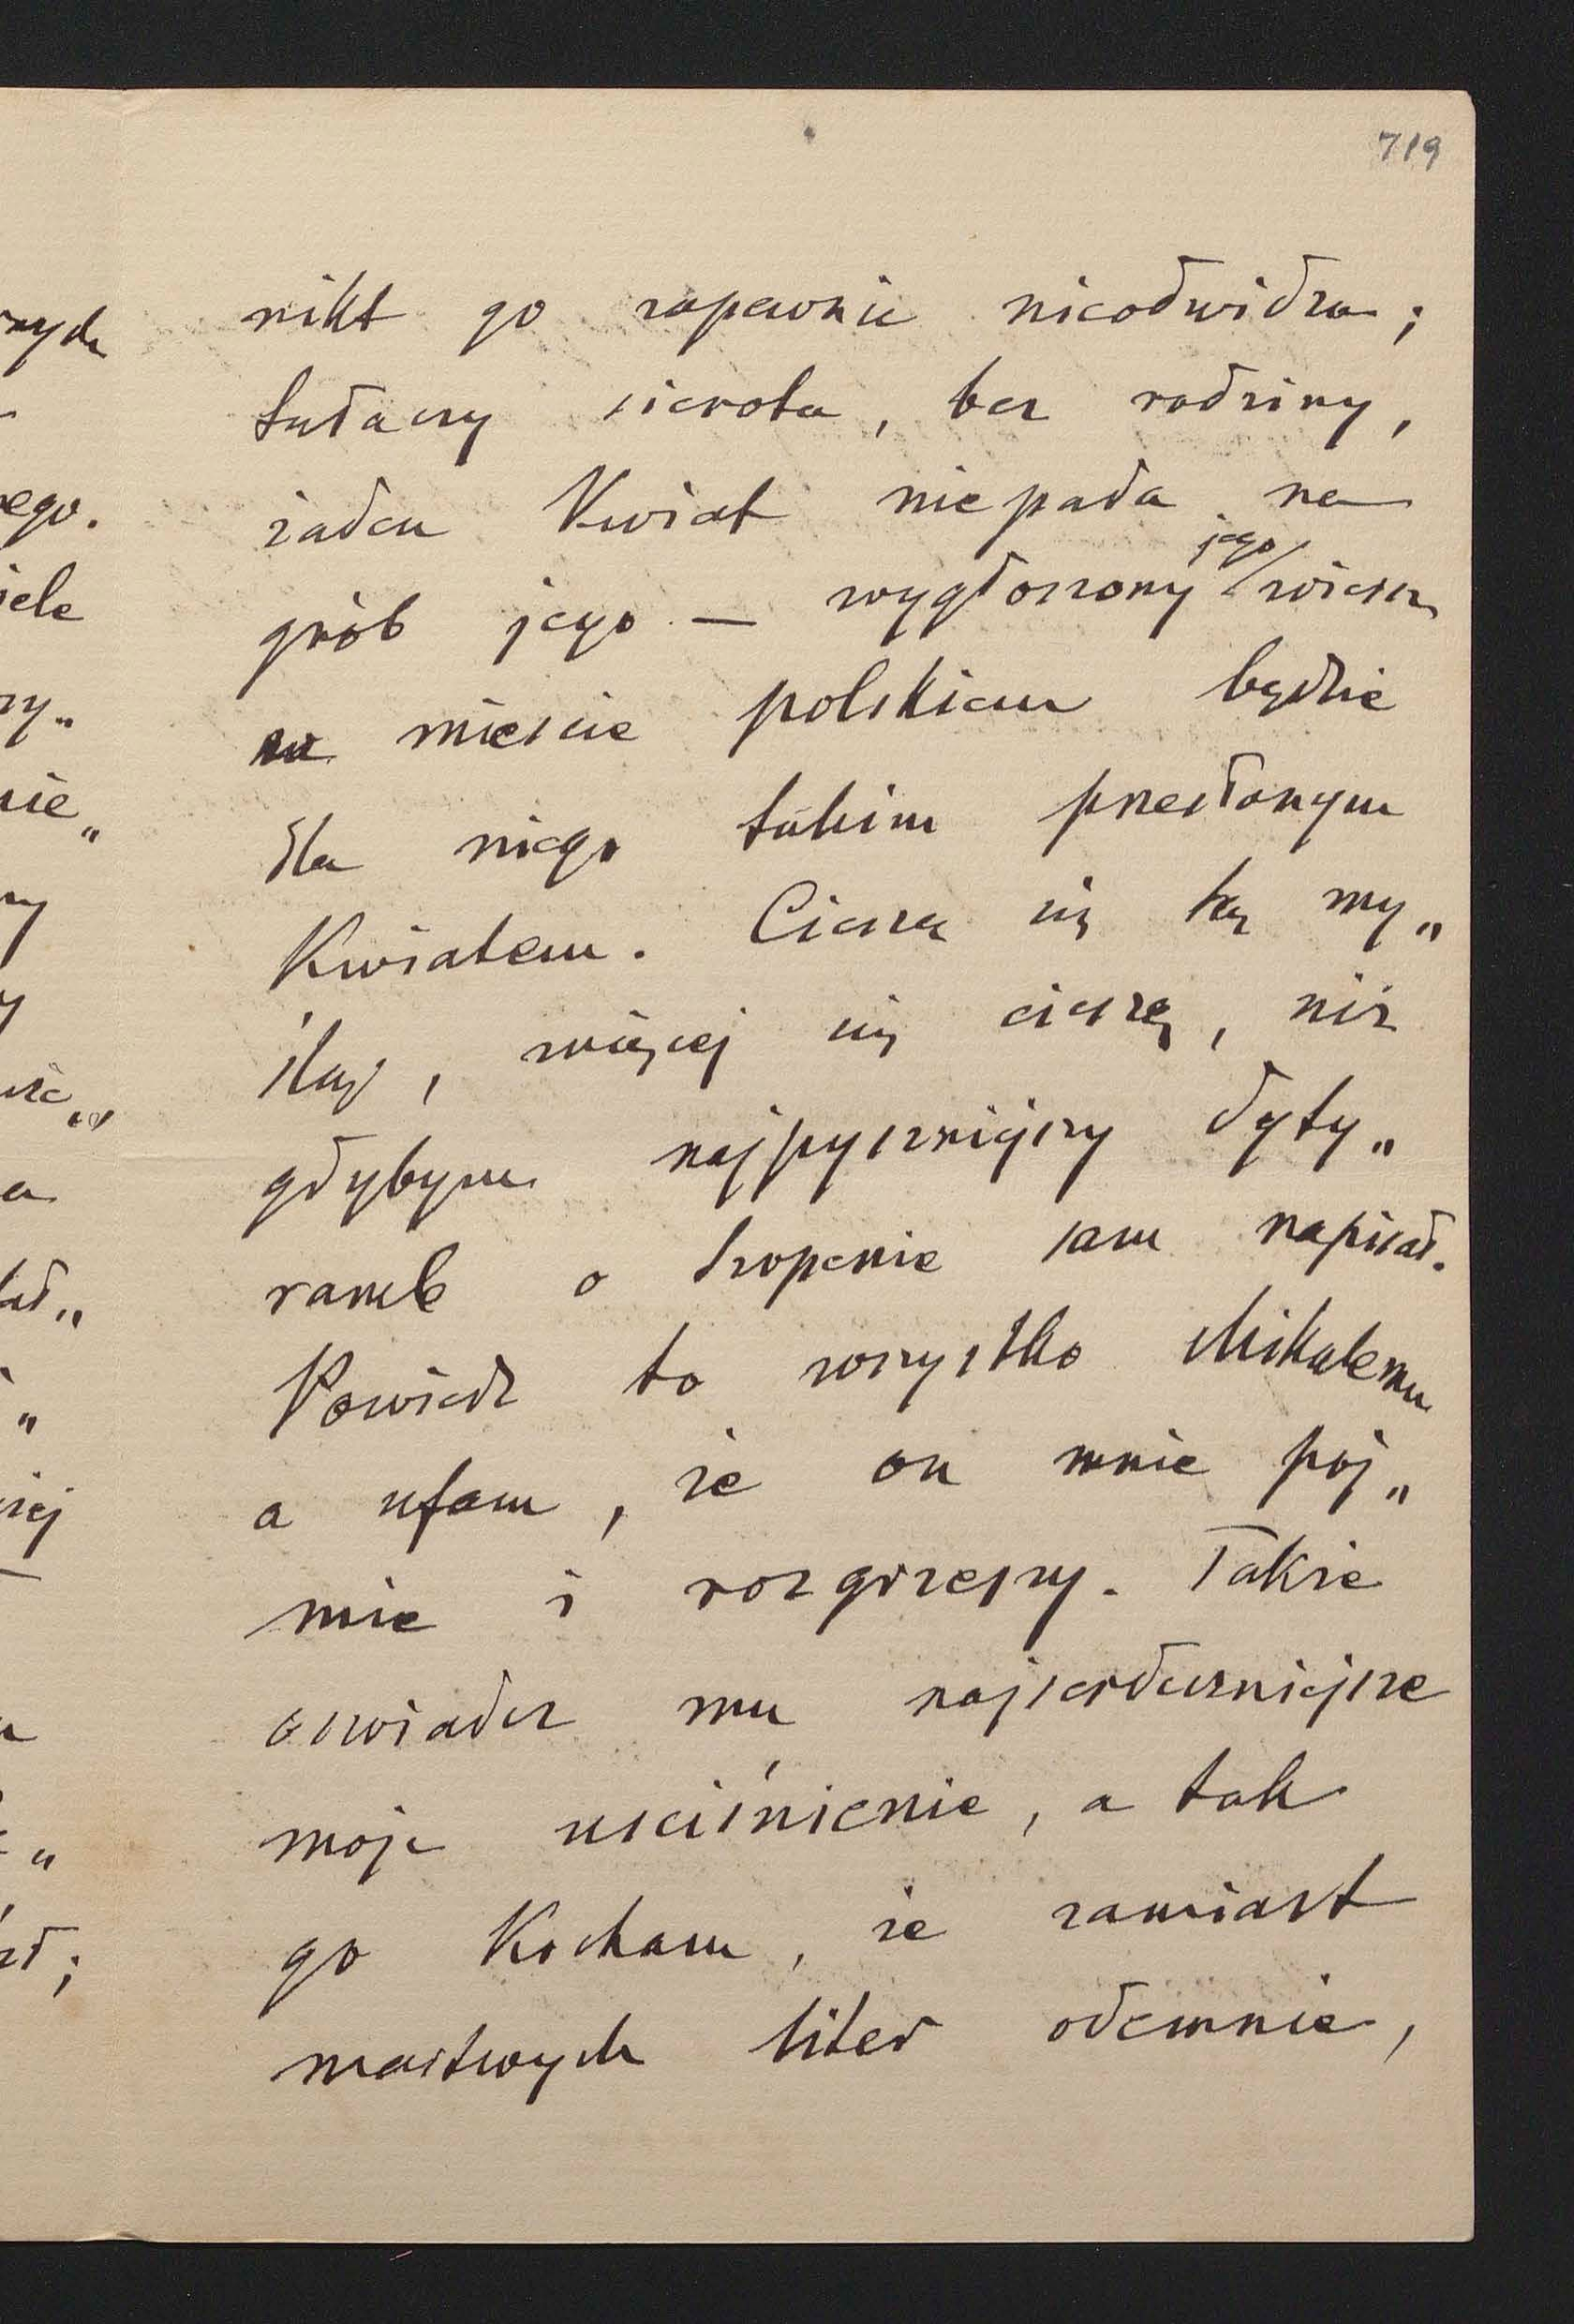 719
nikt go zapewnie nieodwidza;
tułaczy sierota, bez rodziny,
żaden Kwiat niepada na
grób jego — wygłoszony jego wiersz
w mieście polskiem będzie
dla niego takim przesłanym
Kwiatem. Cieszę się tą my„
ślą, więcej się cieszę, niż
gdybym najpyszniejszy dyty„
ramb o Szopenie sam napisał.
Powiedz to wszystko Mikulemu
a ufam, że on mnie poj„
mie i rozgrzeszy. Także
oswiadcz mu najserdeczniejsze
moje uściśnienie, a tak
go Kocham, że zamiast
martwych liter odemnie,